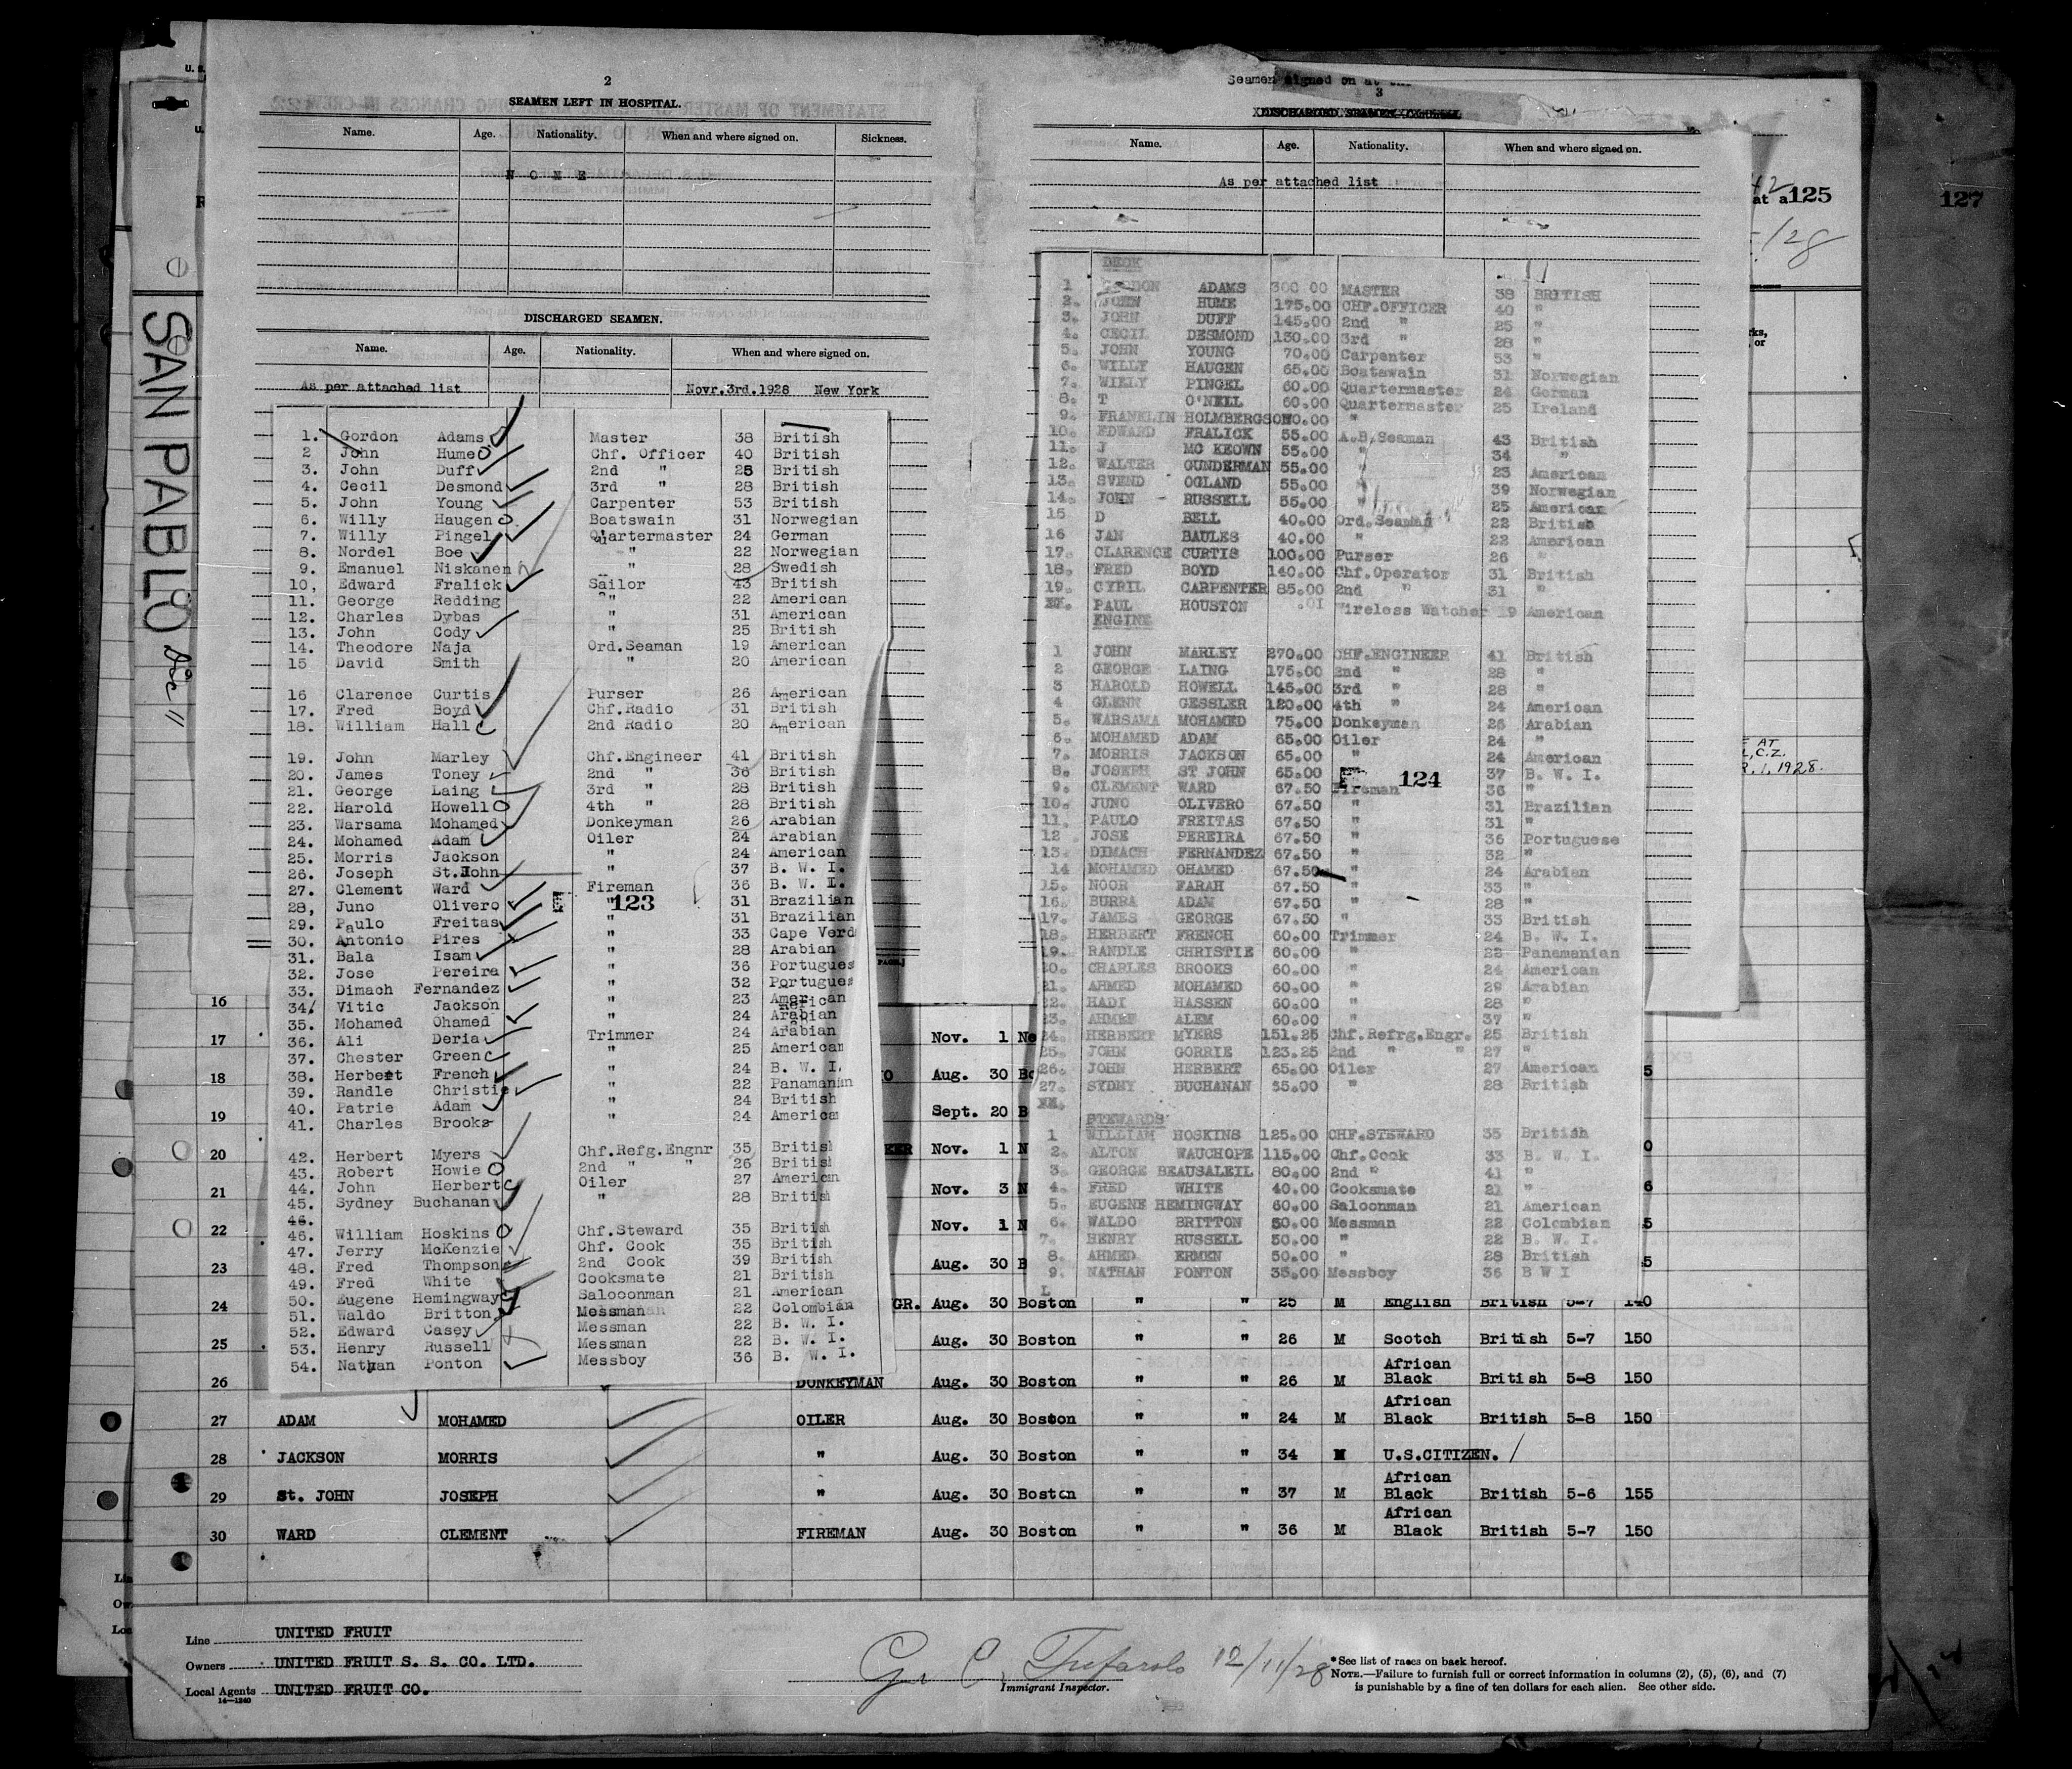 2
SEAMEN LEFT IN HOSPITAL.
Name. Age. Nationality. When and where signed on. Sickness.
N O N E
DISCHARGED SEAMEN.
Name. Age. Nationality. When and where signed on.
As per attached list Novr.3rd.1928 New York
1. Gordon Adams Master 38 British
2 John Hume Chf. Officer 40 British
3. John Duff 2nd " 25 British
4. Cecil Desmond 3rd " 28 British
5. John Young Carpenter 53 British
6. Willy Haugen Boatswain 31 Norwegian
7. Willy Pingel Quartermaster 24 German
8. Nordel Boe " 22 Norwegian
9. Emanuel Niskanen " 28 Swedish
10, Edward Fralick Sailor 43 British
11. George Redding " 22 American
12. Charles Dybas " 31 American
13. John Cody " 25 British
14. Theodore Naja Ord.Seaman 19 American
15 David Smith " 20 American
16 Clarence Curtis Purser 26 American
17. Fred Boyd Chf.Radio 31 British
18. William Hall 2nd Radio 20 American
19. John Marley Chf.Engineer 41 British
20. James Toney 2nd " 36 British
21. George Laing 3rd " 28 British
22. Harold Howell 4th " 28 British
23. Warsama Mohamed Donkeyman 26 Arabian
24. Mohamed Adam Oiler 24 Arabian
25. Morris Jackson " 24 American
26. Joseph St.John " 37 B. W. I.
27. Clement Ward Fireman 36 B. W. I.
28, Juno Olivero " 31 Brazilian
29. Paulo Freitas " 31 Brazilian
30. Antonio Pires " 33 Cape Verd
31. Bala Isam " 28 Arabian
32. Jose Pereira " 36 Portugues
33. Dimach Fernandez " 32 Portugues
34/ Vitic Jackson " 23 American
35. Mohamed Ohamed " 24 Arabian
36. Ali Deria Trimmer 24 Arabian
37. Chester Green " 25 American
38. Herbert French " 24 B. W. I.
39. Randle Christie " 22 Panamanian
40. Patrie Adam " 24 British
41. Charles Brooks " 24 America
42. Herbert Myers Chf.Refg.Engnr 35 British
43. Robert Howie 2nd " " 26 British
44. John Herbert Oiler 27 American
45. Sydney Buchanan " 28 British
46.
46. William Hoskins Chf.Steward 35 British
47. Jerry McKenzie Chf. Cook 35 British
48. Fred Thompson 2nd Cook 39 British
49. Fred White Cooksmate 21 British
50. Eugene Hemingway Saloconman 21 American
51. Waldo Britton Messman 22 Colombian
52. Edward Casey Messman 22 B. W. I.
53. Henry Russell Messman 22 B. W. I.
54. Nathan Ponton Messboy 36 B. W. I.
E 123
Seamen signed on at
3
Name. Age. Nationality. When and where signed on.
As per attached list
DECK
1 GORDON ADAMS 300 00 MASTER 38 BRITISH
2. JOHN HUME 175.00 CHF.OFFICER 40 "
3. JOHN DUFF 145.00 2nd " 25 "
4. CECIL DESMOND 130.00 3rd " 28 "
5. JOHN YOUNG 70.00 Carpenter 53 "
6. WILLY HAUGEN 65.00 Boatswain 31 Norwegian
7. WILLY PINGEL 60.00 Quartermaster 24 German
8. T O'NELL 60.00 Quartermaster 25 Ireland
9. FRANKLIN HOLMBERGSON0.00 "
10. EDWARD FRALICK 55.00 A.B.Seaman 43 British
11. J MC KEOWN 55.00 " 34 "
12. WALTER GUNDERMAN 55.00 " 23 American
13. SVEND OGLAND 55.00 " 39 Norwegian
14. JOHN RUSSELL 55.00 " 25 American
15 D BELL 40.00 Ord.Seaman 22 British
16 JAN BAULES 40.00 " 22 American
17. CLARENCE CURTIS 100.00 Purser 26 "
18. FRED BOYD 140.00 Chf.Operator 31 British
19. CYRIL CARPENTER 85.00 2nd " 31 "
PAUL HOUSTON .01 Wireless Watcher 19 American
ENGINE
1 JOHN MARLEY 270.00 CHF.ENGINEER 41 British
2 GEORGE LAING 175.00 2nd " 28 "
3 HAROLD HOWELL 145.00 3rd " 28 "
4 GLENN GESSLER 120.00 4th " 24 American
5. WARSAMA MOHAMED 75.00 Donkeyman 26 Arabian
6. MOHAMED ADAM 65.00 Oiler 24 "
7. MORRIS JACKSON 65.00 " 24 American
8. JOSEPH ST JOHN 65.00 37 B. W. I.
9. CLEMENT WARD 67.50 Fireman 36 "
10. JUNO OLIVERO 67.50 " 31 Brazilian
11. PAULO FREITAS 67.50 " 31 "
12 JOSE PEREIRA 67.50 " 36 Portuguese
13. DIMACH FERNANDEZ 67.50 " 32 "
14 MOHAMED OHAMED 67.50 " 24 Arabian
15. NOOR FARAH 67.50 " 33 "
16. BURRA ADAM 67.50 " 28 "
17. JAMES GEORGE 67.50 " 33 British
18. HERBERT FRENCH 60.00 Trimmer 24 B. W. I.
19. RANDLE CHRISTIE 60.00 " 22 Panamanian
20. CHARLES BROOKS 60.00 " 24 American
21. AHMED MOHAMED 60.00 " 29 Arabian
22. HADI HASSEN 60.00 " 28 "
23. AHMED ALEM 60.00 " 37 "
24. HERBERT MYERS 151.25 Chf.Refrg.Engr. 25 British
25. JOHN GORRIE 123.25 2nd " " 27 "
26. JOHN HERBERT 65.00 Oiler 27 American
27. SYDNY BUCHANAN 35.00 " 28 British
STEWARDS
1 WILLIAM HOSKINS 125.00 CHF.STEWARD 35 British
2. ALTON WAUCHOPE 115.00 Chf.Cook 33 B. W. I.
3. GEORGE BEAUSALEIL 80.00 2nd " 41 "
4. FRED WHITE 40.00 Cooksmate 21 "
5. EUGENE HEMINGWAY 60.00 Saloonman 21 American
6. WALDO BRITTON 50.00 Messman 22 Colombian
7. HENRY RUSSELL 50.00 " 22 B. W. I.
8. AHMED ERMEN 50.00 " 28 British
9. NATHAN PONTON 35.00 Messboy 36 B W I
E 124
125
127
SAN PABLO Dec 11
16
17 Nov. 1 Ne
18 Aug. 30 Bo
19 Sept. 20 B
20 Nov. 1 N
21 Nov. 3 N
22 Nov. 1 N
23 Aug. 30 B
24 GR. Aug. 30 Boston " " 25 M English British 5-7 140
25 Aug. 30 Boston " " 26 M Scotch British 5-7 150
26 DONKEYMAN Aug. 30 Boston " " 26 M African Black British 5-8 150
27 ADAM MOHAMED OILER Aug. 30 Boston " " 24 M African Black British 5-8 150
28 JACKSON MORRIS " Aug. 30 Boston " " 34 M U.S.CITIZEN.
29 St. JOHN JOSEPH " Aug. 30 Boston " " 37 M African Black British 5-6 155
30 WARD CLEMENT FIREMAN Aug. 30 Boston " " 36 M African Black British 5-7 150
Line UNITED FRUIT
Owners UNITED FRUIT S. S. CO. LTD.
Local Agents UNITED FRUIT CO.
14-1240
12/11/28
Immigrant Inspector.
*See list of races on back hereof.
NOTE.—Failure to furnish full or correct information in columns (2), (5), (6), and (7)
is punishable by a fine of ten dollars for each alien. See other side.